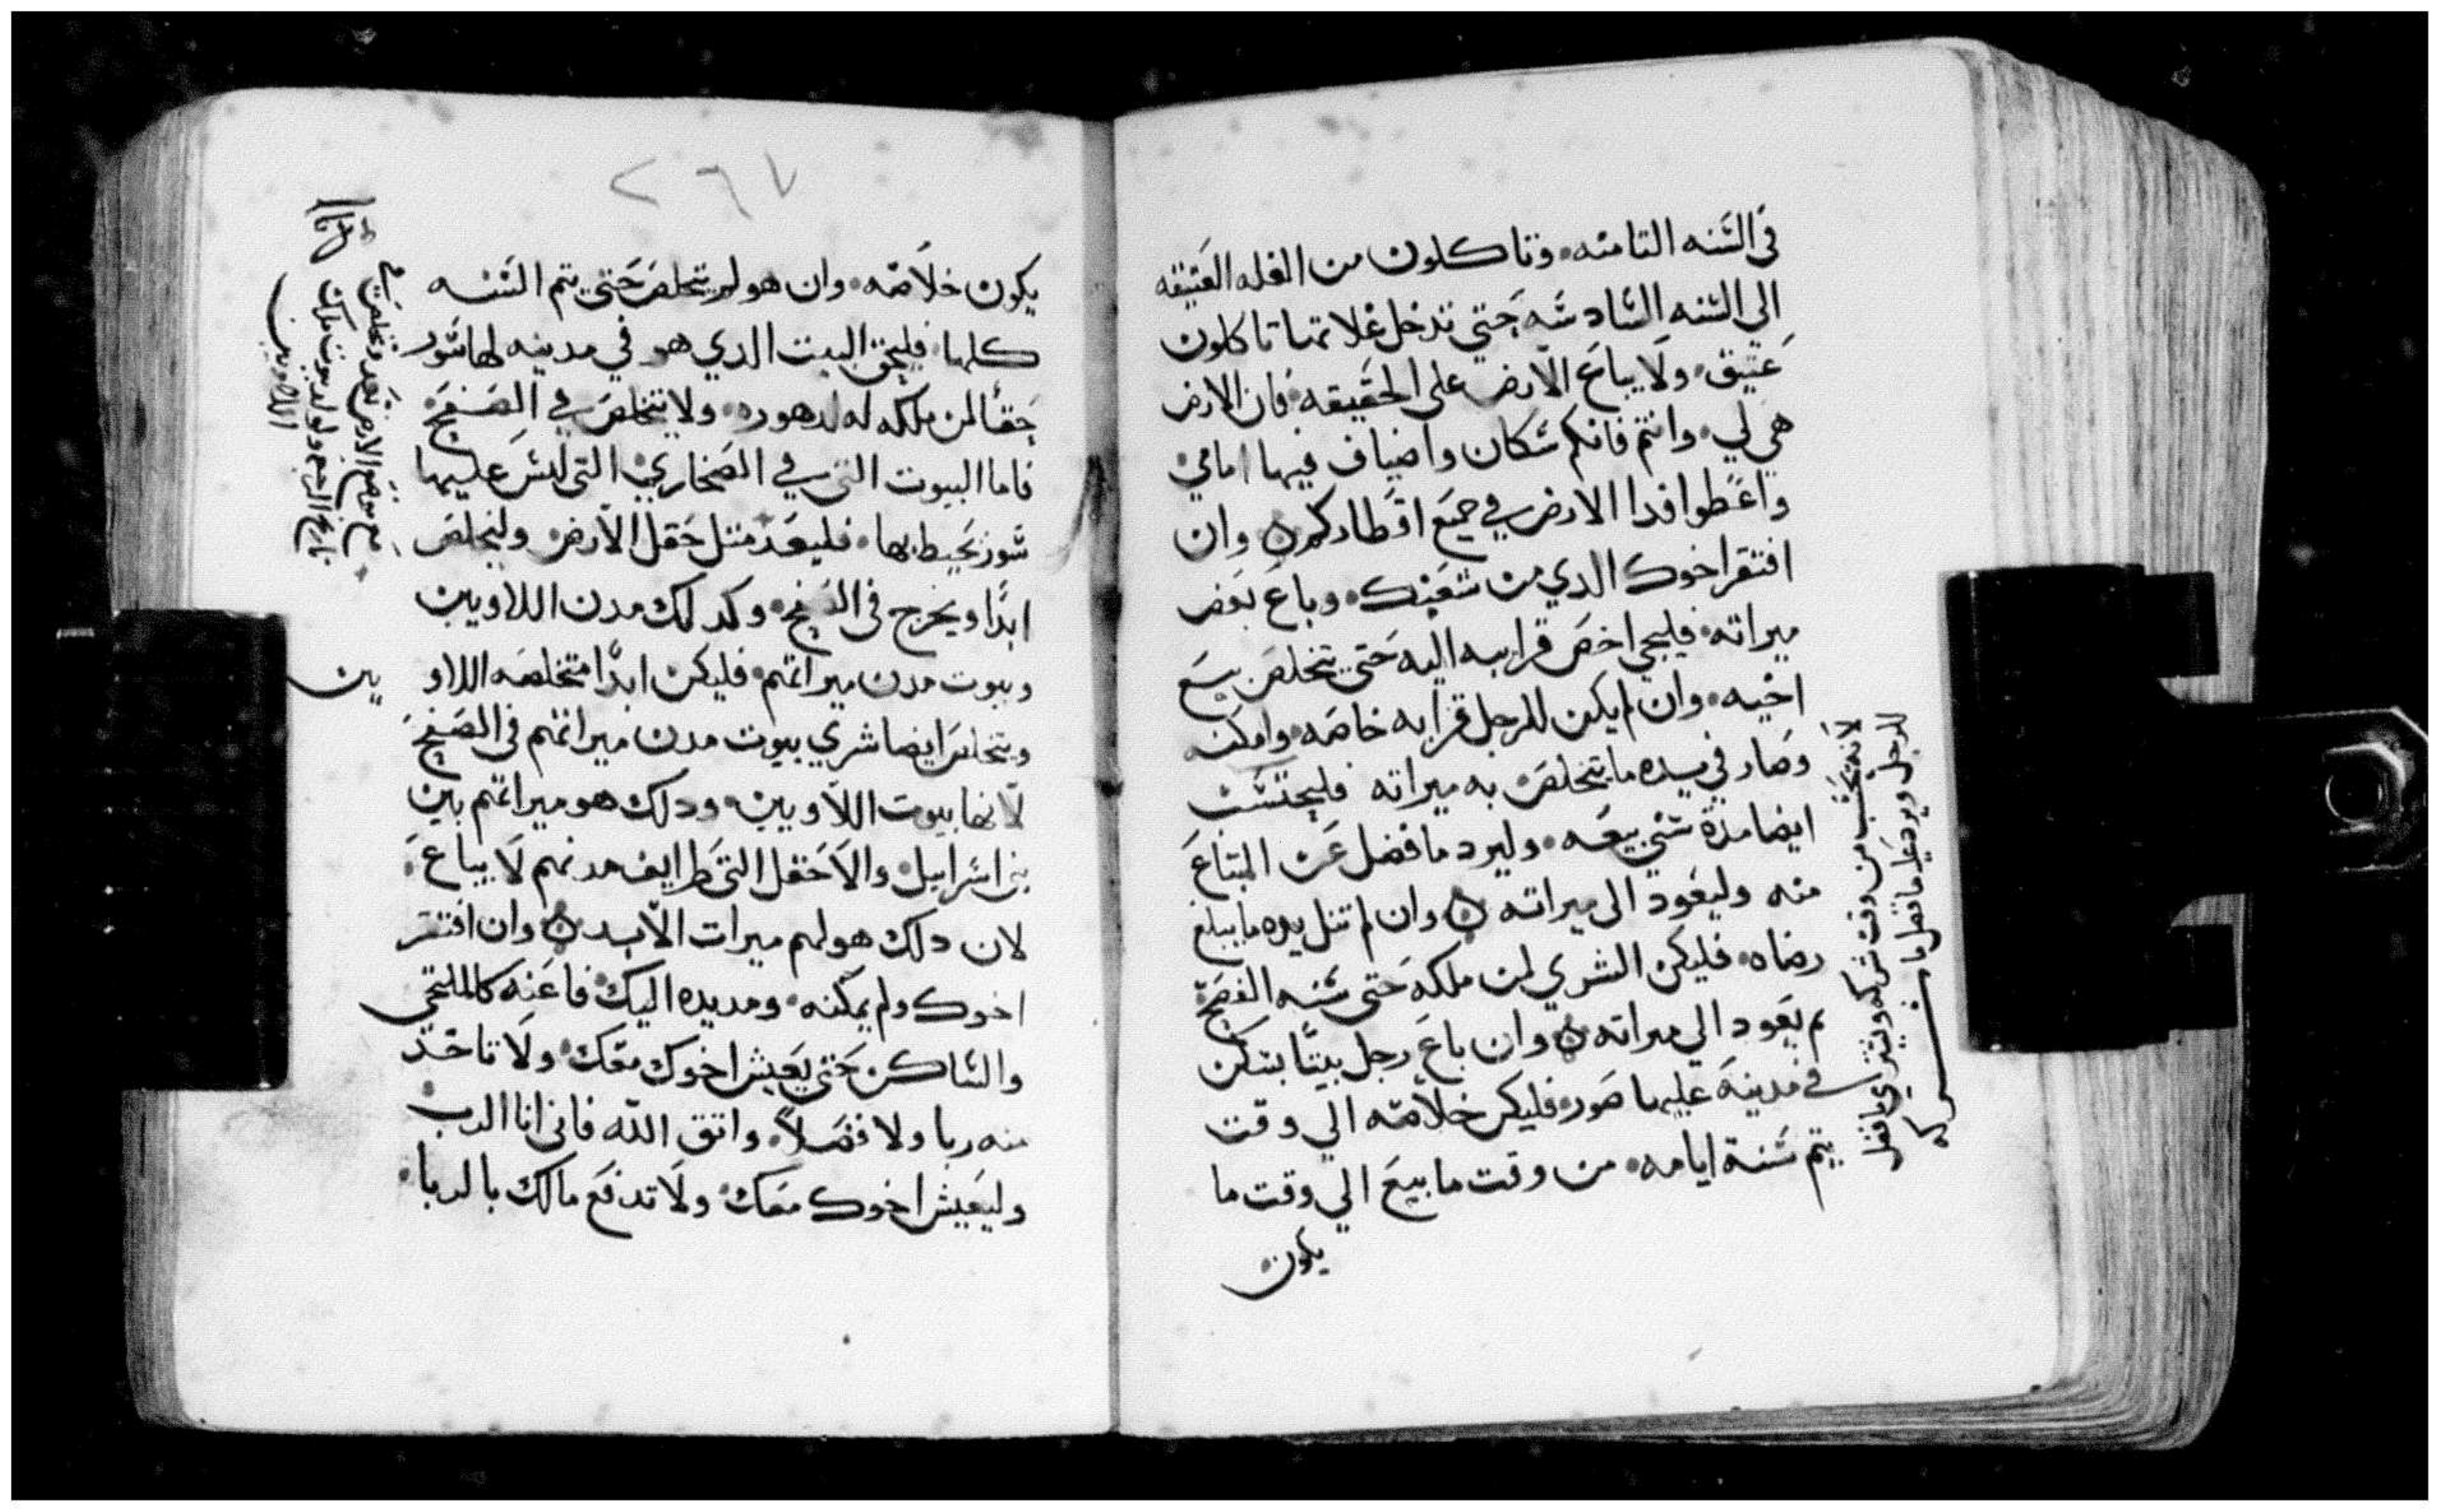 في السنه التامنه، وتاكلون من الغله العتيقه
الي السنه السادسه حتي تدخل غلاتها تاكلون
عتيق، ولا يباع الارض على الحقيقه، فان الارض
هي لي، وانتم فانكم سكان واضياف فيها امامي
واعطوا فدا الارض في جميع اقطاركم ه وان
افتقر اخوك الدي من شعبك، وباع بعض
ميراته، فليجي اخص قرابه اليه حتي يتخلص بيع
اخيه، وان لم يكن للرجل قرابه خاصه، وامكنه
وصار في يده ما يتخلص به ميراته فليحتسب
ايضا مدة سني بيعه، وليرد ما فضل عن المبتاع
منه وليعود الى ميراته ه وان لم تنل يده ما يبلغ
رضاه، فليكن الشري لمن ملكه حتى سنه الفسح
تم يعود الي ميراته ه وان باع رجل بيتا يسكن
في مدينه عليها صور، فليكن خلاصه الي وقت
يتم سنة ايامه، من وقت ما بيع الي وقت ما
يكون
لانه يحسب من وقت شراه
للرجل ويرد عليه ما فضل
٢٦٧
يكون خلاصه، وان هو لم يتخلص حتي يتم السنه
كلها، فليحق البيت الدي هو في مدينه لها سور
حقا لمن ملكه له لدهوره، ولا يتخلص في الفسخ
فاما البيوت التي في الصحاري، التي ليس عليها
سور يحيط بها، فليعد متل حقل الارض وليخلص
ابدا ويخرج في الفسخ، وكدلك مدن اللاويين
وبيوت مدن ميراتهم، فليكن ابدا متخلصه اللاويين
ويتخلص ايضا شري بيوت مدن ميراتهم في الفسخ
لانها بيوت اللاويين، ودلك هو ميراتهم بين
بني اسراييل، والاحقل التي طرايف مدنهم لا يباع،
لان دلك هو لهم ميرات الابد ه وان افتقر
اخوك ولم يمكنه، ومد يده اليك، فاعنه كالملتجي
والساكن حتي يعيش اخوك معك، ولا تاخد
منه ربا ولا فضلا، واتق الله فاني انا الرب
وليعيش اخوك معك، ولا تدفع مالك بالربا،